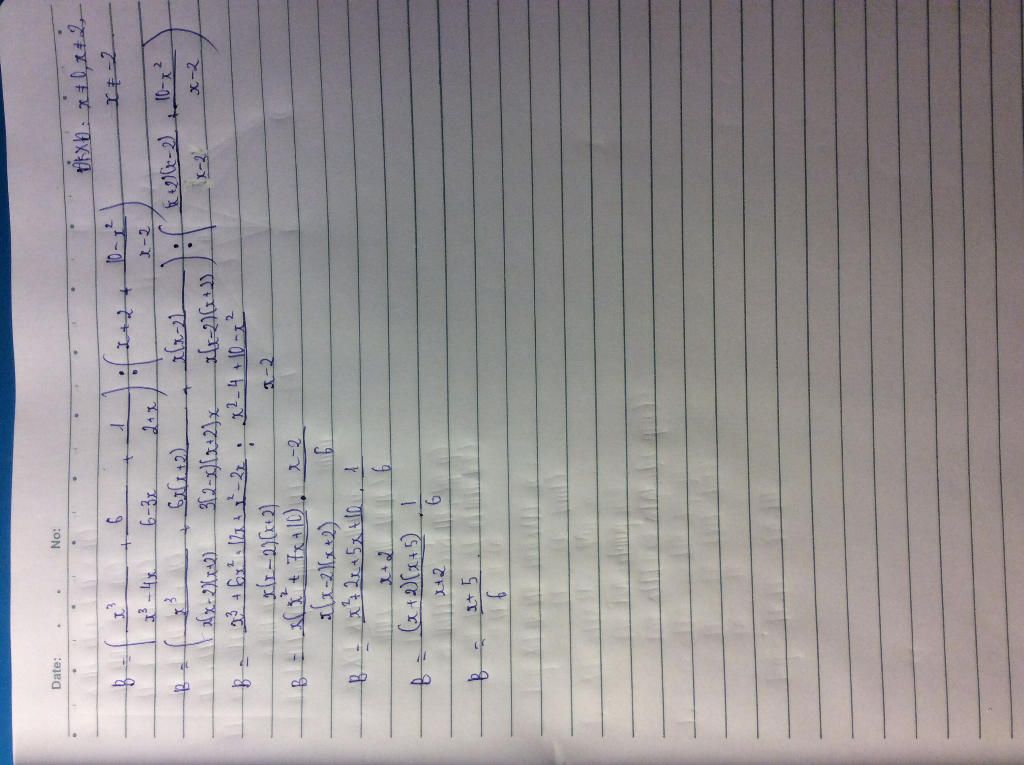 Date: No:
ĐKXĐ: x ≠ 0, x ≠ 2,
x ≠ -2
B = ( x³/(x³-4x) + 6/(6-3x) + 1/(2+x) ) : ( x+2 + (10-x²)/(x-2) )
B = ( x³/(x(x-2)(x+2)) + 6x(x+2)/(3(2-x)(x+2)x) + x(x-2)/(x(x-2)(x+2)) ) : ( (x+2)(x-2)/(x-2) + (10-x²)/(x-2) )
B = (x³+6x²+12x+x²-2x)/(x(x-2)(x+2)) : (x²-4+10-x²)/(x-2)
B = x(x²+7x+10)/(x(x-2)(x+2)) . (x-2)/6
B = (x²+2x+5x+10)/(x+2) . 1/6
B = (x+2)(x+5)/(x+2) . 1/6
B = (x+5)/6